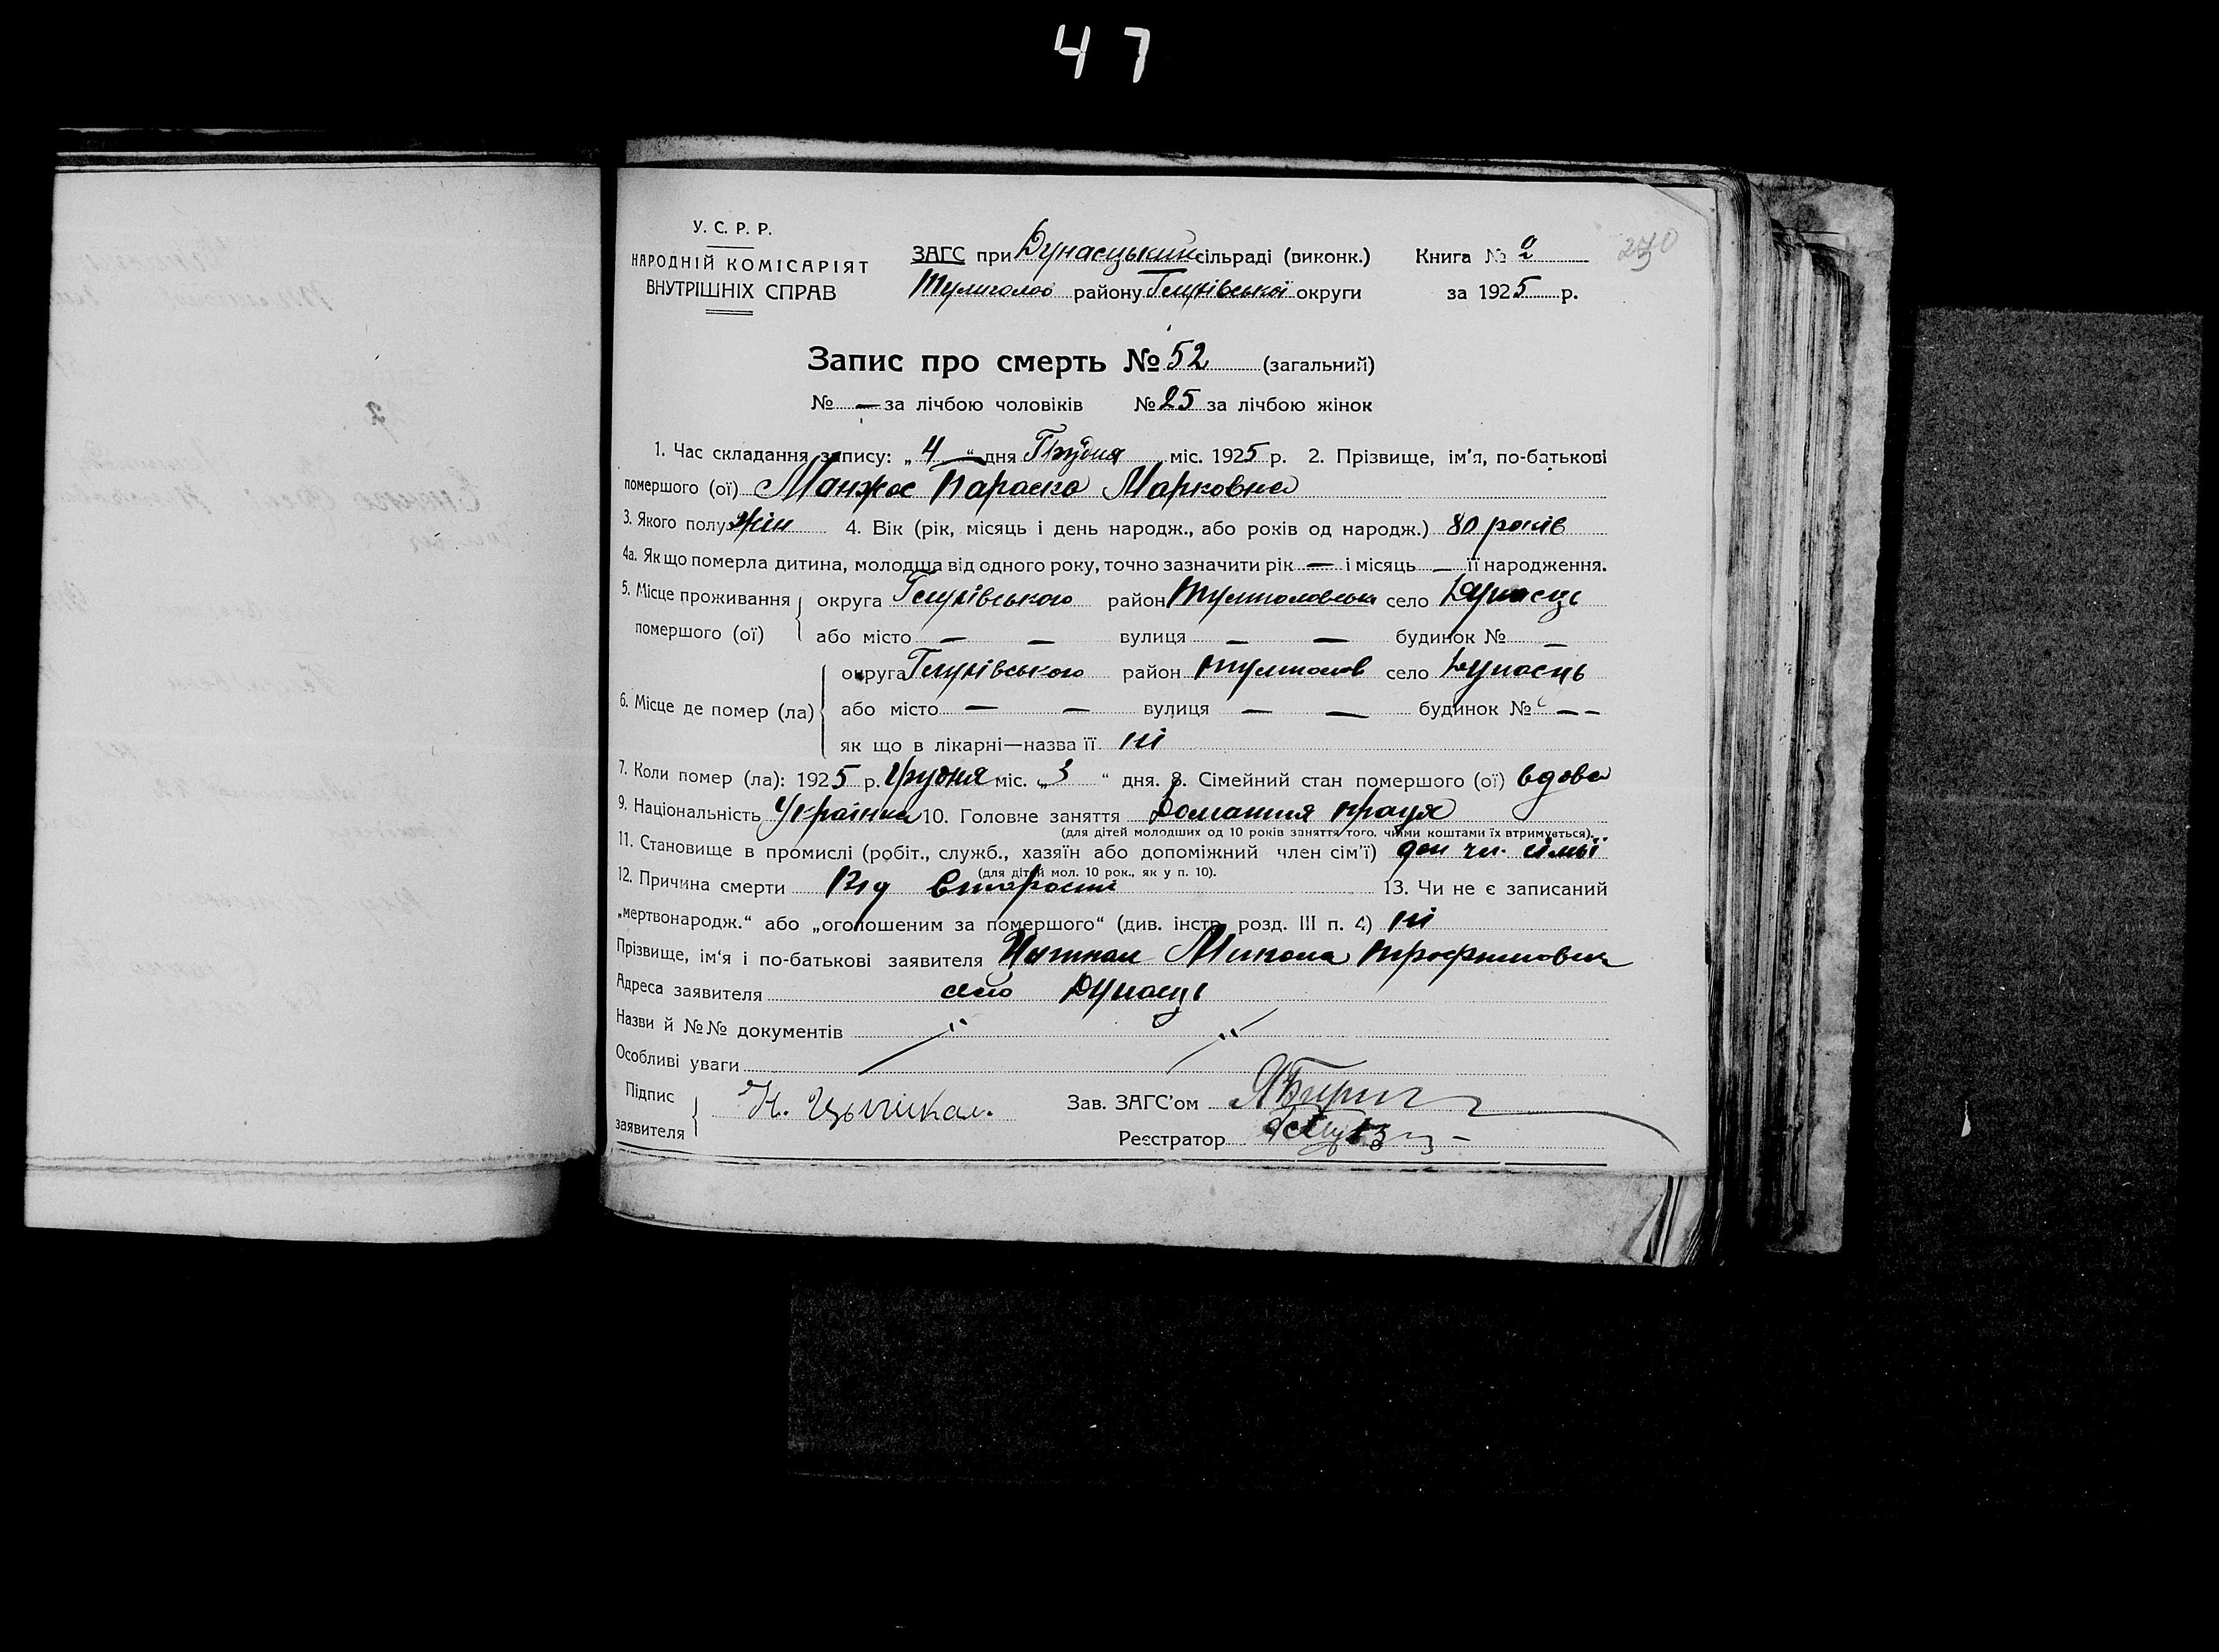 47
У. С. Р. Р.
НАРОДНІЙ КОМІСАРІЯТ
ВНУТРІШНІХ СПРАВ
ЗАГС при Дунаецький сільраді (виконк.) Книга № 2
Тулиголов району Глухівської округи за 1925 р.
270
Запис про смерть № 52 (загальний)
№ — за лічбою чоловіків № 25 за лічбою жінок
1. Час складання запису: „ 4 “ дня Грудня міс. 1925 р. 2. Прізвище, ім'я, по-батькові
помершого (ої) Манжос Параска Марковна
3. Якого полу жін 4. Вік (рік, місяць і день народж., або років од народж.) 80 років
4а. Як що померла дитина, молодша від одного року, точно зазначити рік — і місяць — її народження.
5. Місце проживання округа Глухівського район Тулиголовськ село Дунаець
помершого (ої) або місто — — вулиця — — будинок № —
округа Глухівського район Тулиголов село Дунаець
6. Місце де помер (ла) або місто — — вулиця — — будинок № — —
як що в лікарні—назва її ні
7. Коли помер (ла): 1925 р. Грудня міс. „ 3 “ дня. 8. Сімейний стан помершого (ої) вдова
9. Національність Українка 10. Головне заняття Домашня праця
(для дітей молодших од 10 років заняття того, чиїми коштами їх втримується).
11. Становище в промислі (робіт., служб., хазяїн або допоміжний член сім'ї) доп чл. сімьї
(для дітей мол. 10 рок., як у п. 10).
12. Причина смерти Від Старости 13. Чи не є записаний
„мертвонародж.“ або „оголошеним за помершого“ (див. інстр. розд. III п. 4) ні
Прізвище, ім'я і по-батькові заявителя Микола Трофимович
Адреса заявителя село Дунаець
Назви й №№ документів
Особливі уваги
Підпис
заявителя Н.
Зав. ЗАГС'ом
Реєстратор